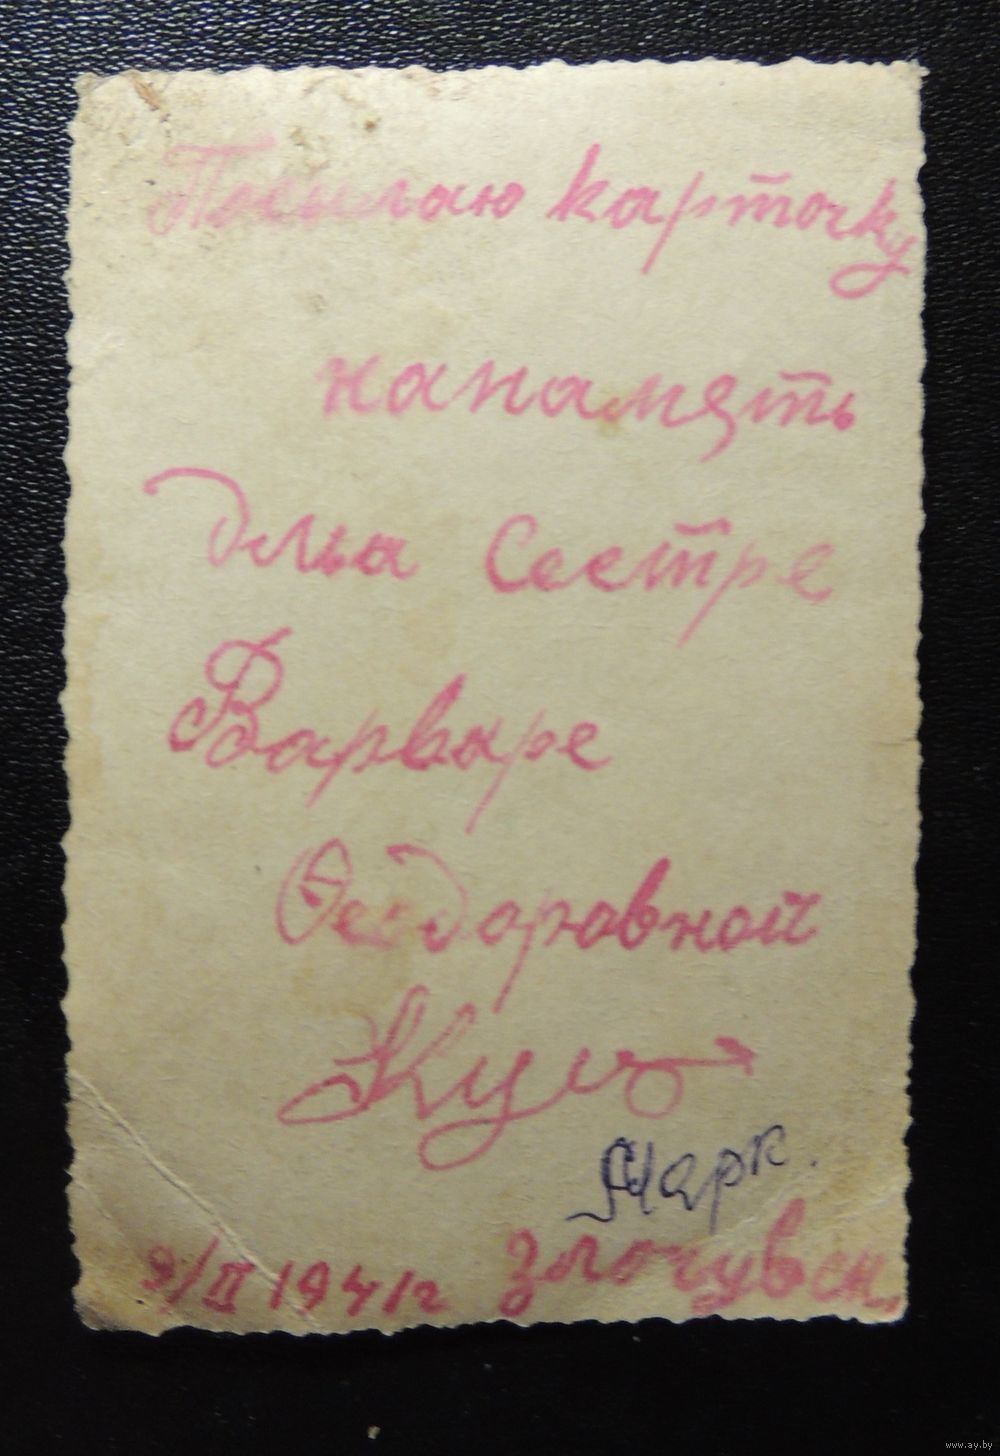 Посылаю карточку
напамять
длья Сестре
Варваре
Феодоровной
Марк.
9/II 1941г Злочувск.
www.ay.by